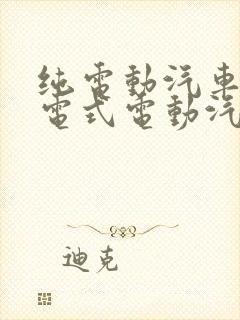 纯電動汽車
電式電動汽
迪克